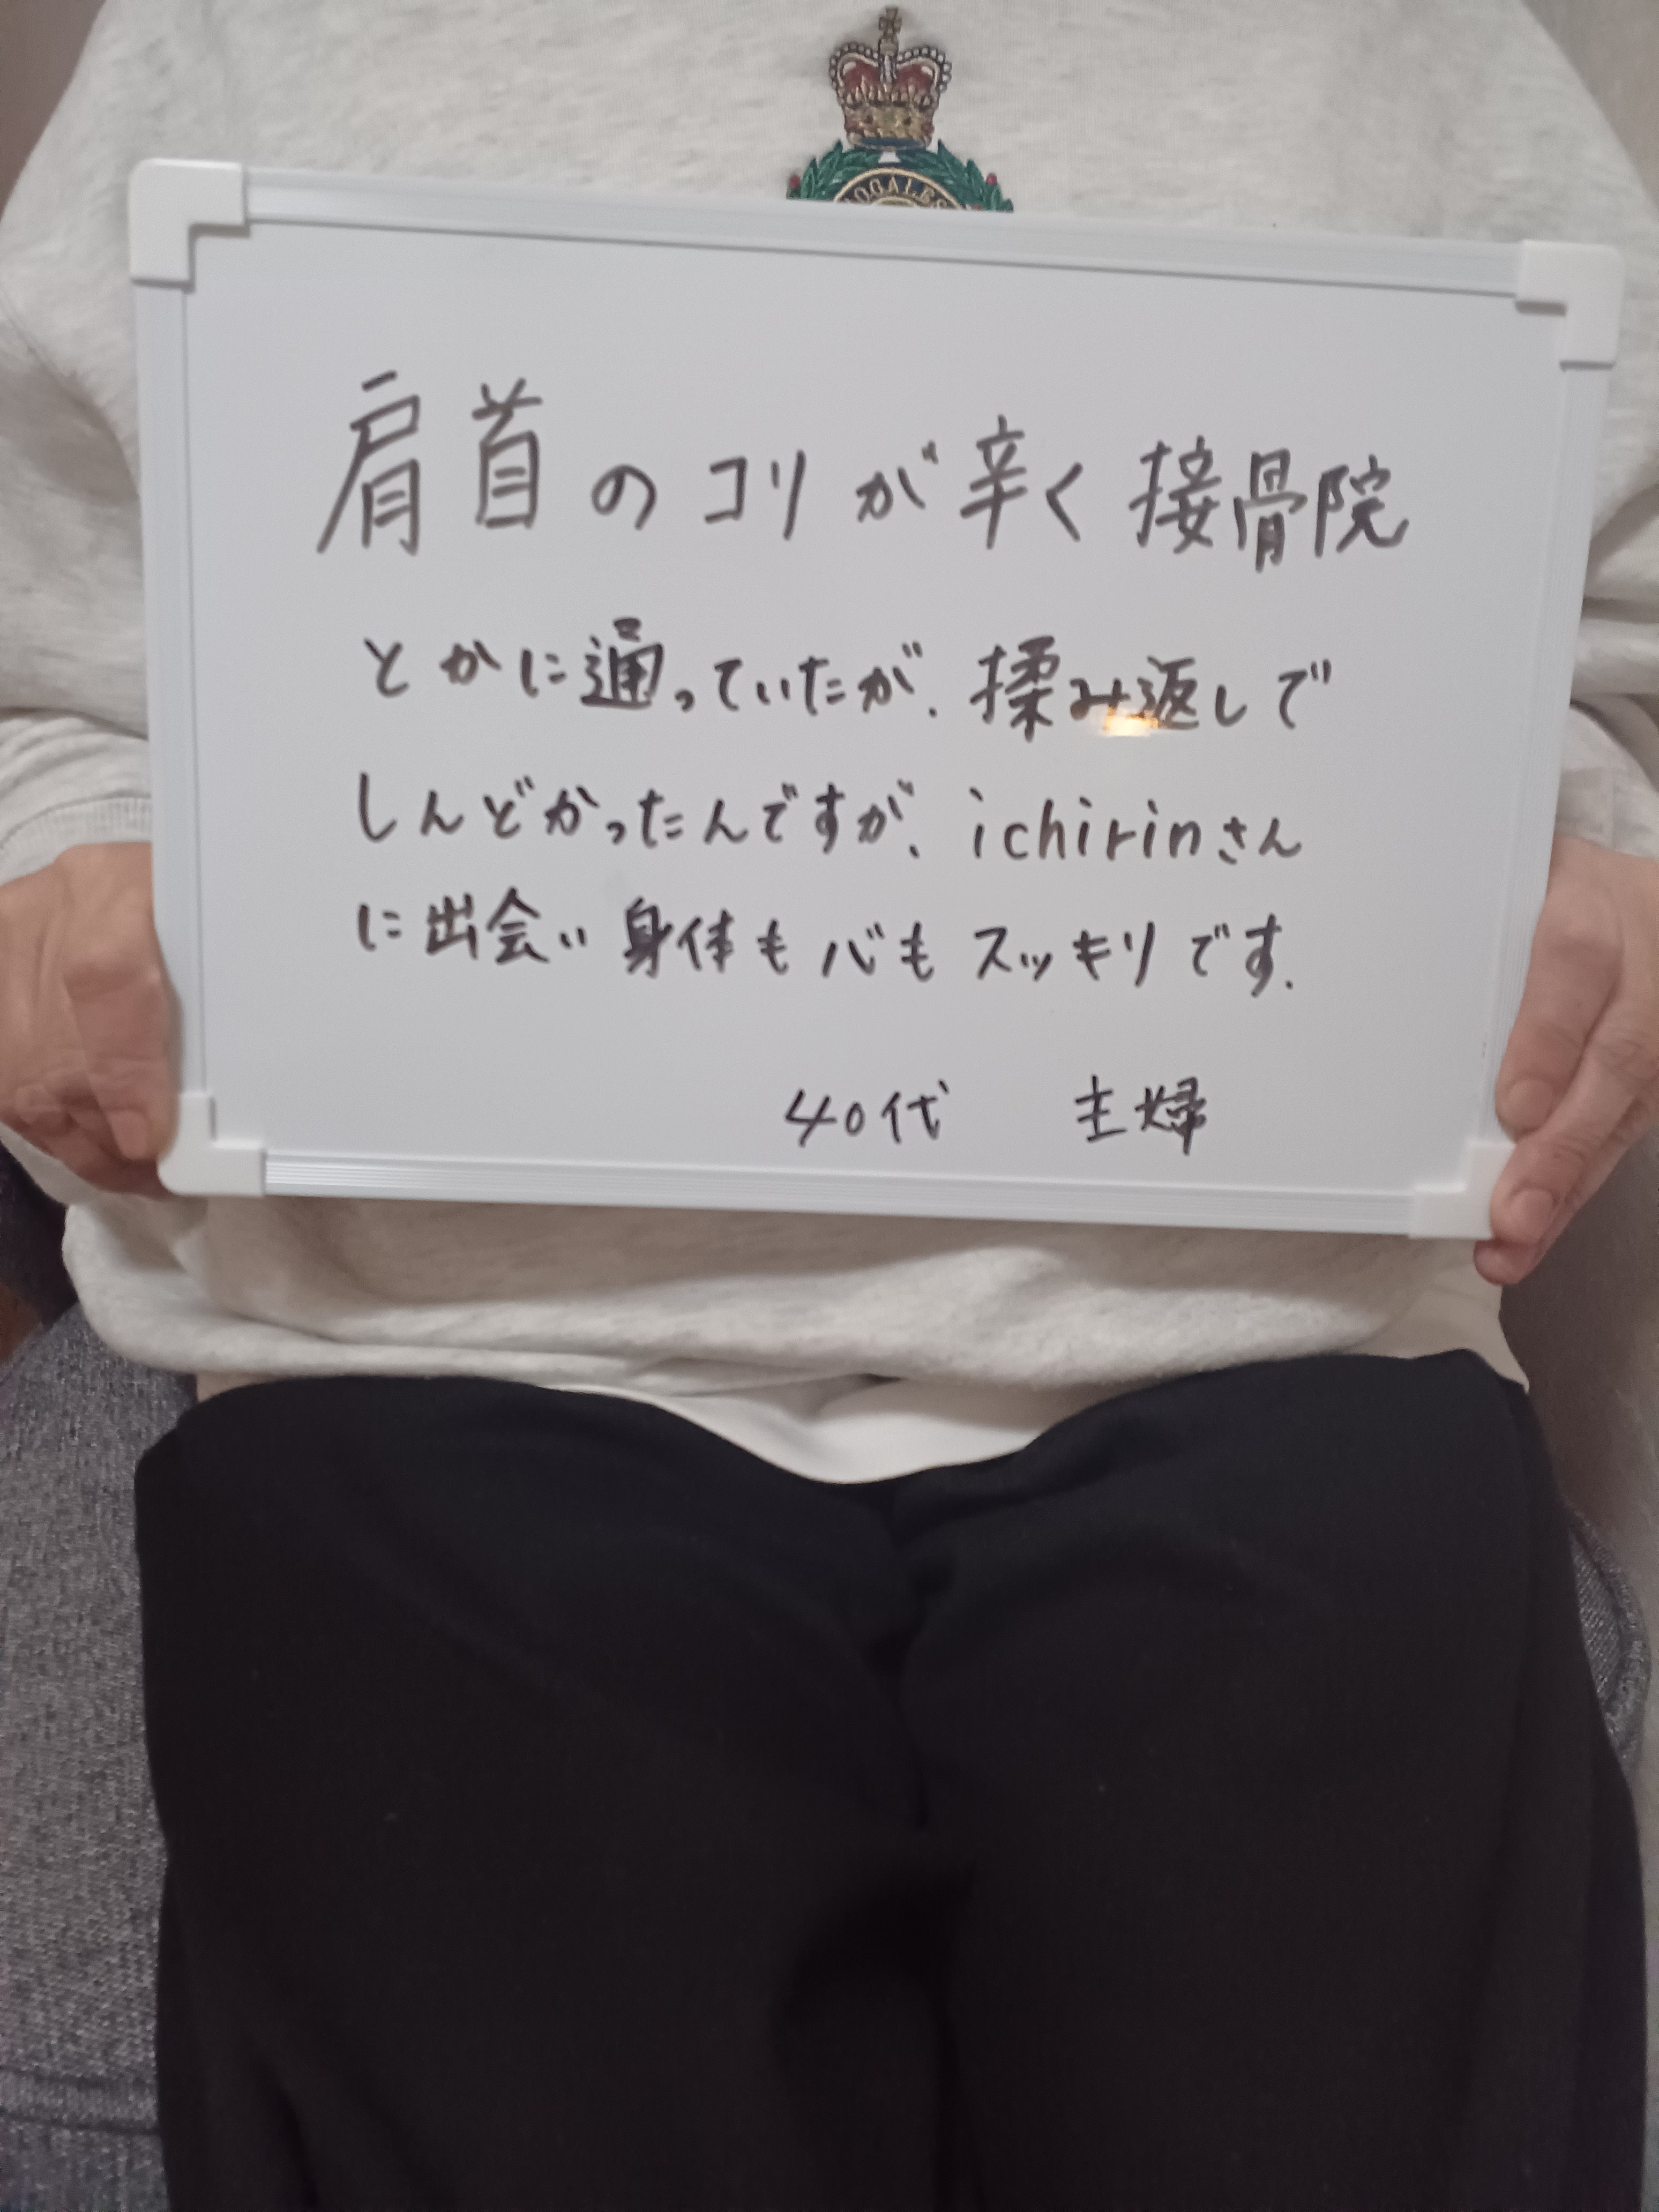 OGALES
肩首のコリが辛く接骨院
とかに通っていたが、揉み返しで
しんどかったんですが、ichirinさん
に出会い身体も心もスッキリです.
40代 主婦